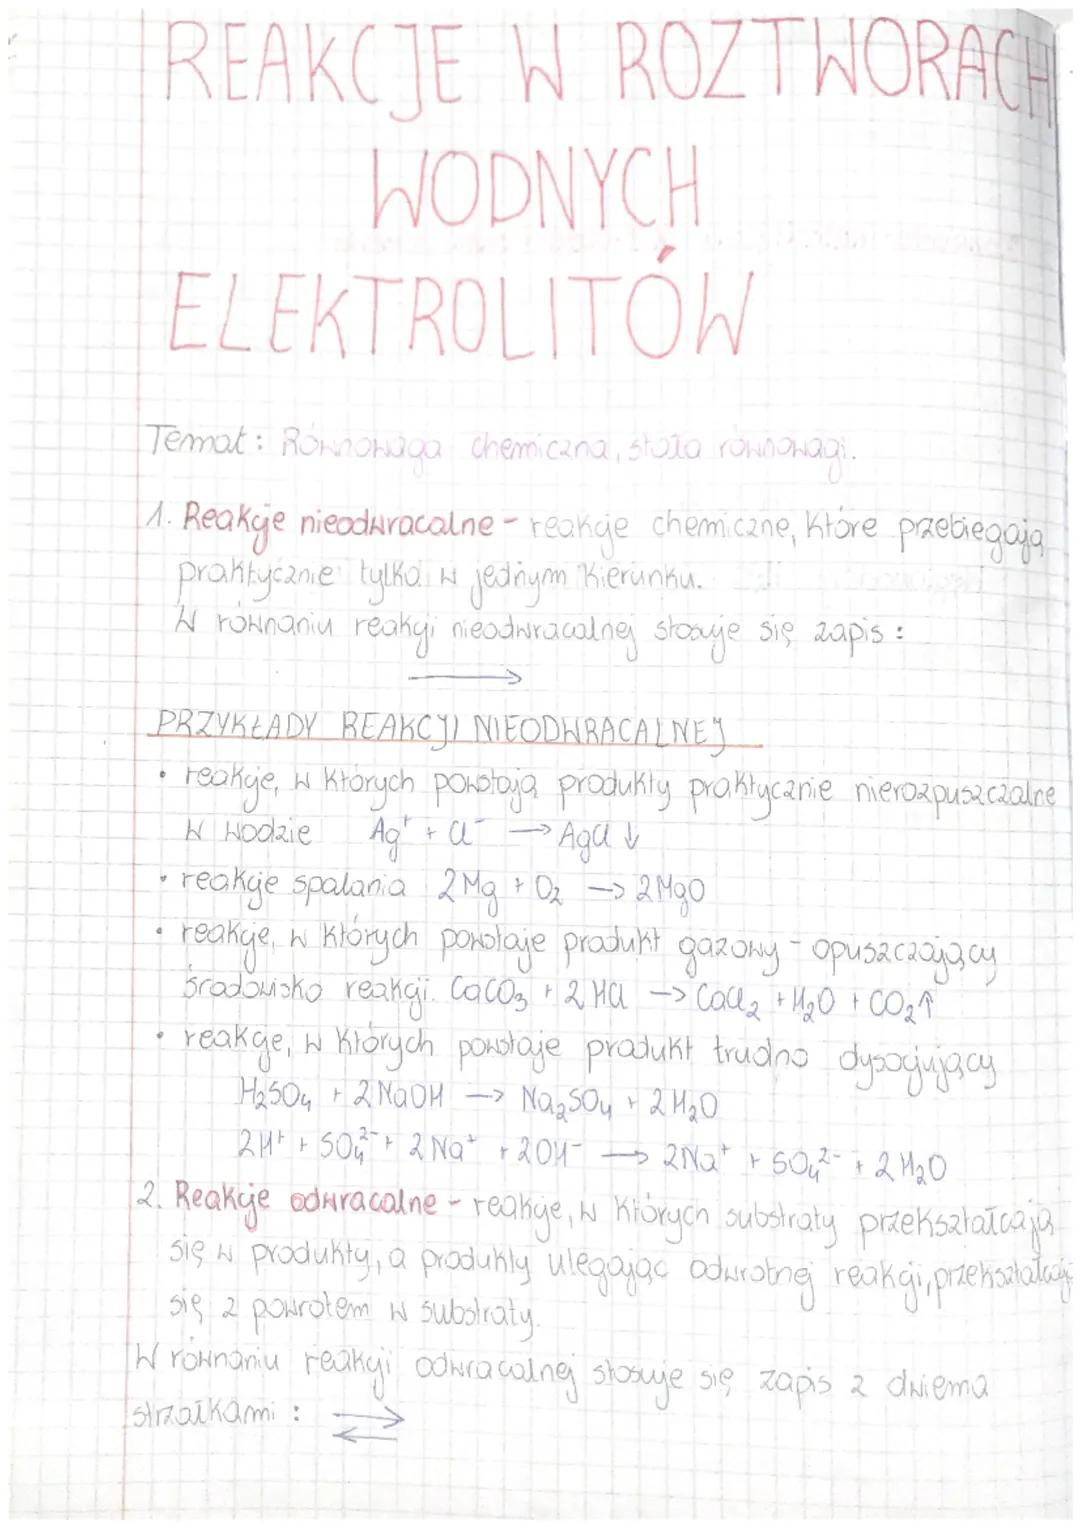 REAKCJE W ROZTWORACH
WODNYCH
ELEKTROLITÓW
Temat: Równowaga chemiczna, stała równowagi.
1. Reakcje nieodwracalne - reakcje chemiczne, które przebiegają
praktycznie tylko w jednym kierunku.
W równaniu reakcji nieodwracalnej stosuje się zapis:
→
PRZYKŁADY REAKCJI NIEODWRACALNEJ
• reakcje, w których powstają produkty praktycznie nierozpuszczalne
w wodzie Ag⁺ + Cl⁻ → AgCl ↓
• reakcje spalania 2Mg + O₂ → 2MgO
• reakcje, w których powstaje produkt gazowy - opuszczający
środowisko reakcji. CaCO₃ + 2HCl → CaCl₂ + H₂O + CO₂↑
• reakcje, w których powstaje produkt trudno dysocjujący
H₂SO₄ + 2NaOH → Na₂SO₄ + 2H₂O
2H⁺ + SO₄²⁻ + 2Na⁺ + 2OH⁻ → 2Na⁺ + SO₄²⁻ + 2H₂O
2. Reakcje odwracalne - reakcje, w których substraty przekształcają
się w produkty, a produkty ulegając odwrotnej reakcji, przekształcają
się z powrotem w substraty.
W równaniu reakcji odwracalnej stosuje się zapis z dwiema
strzałkami: ⇄